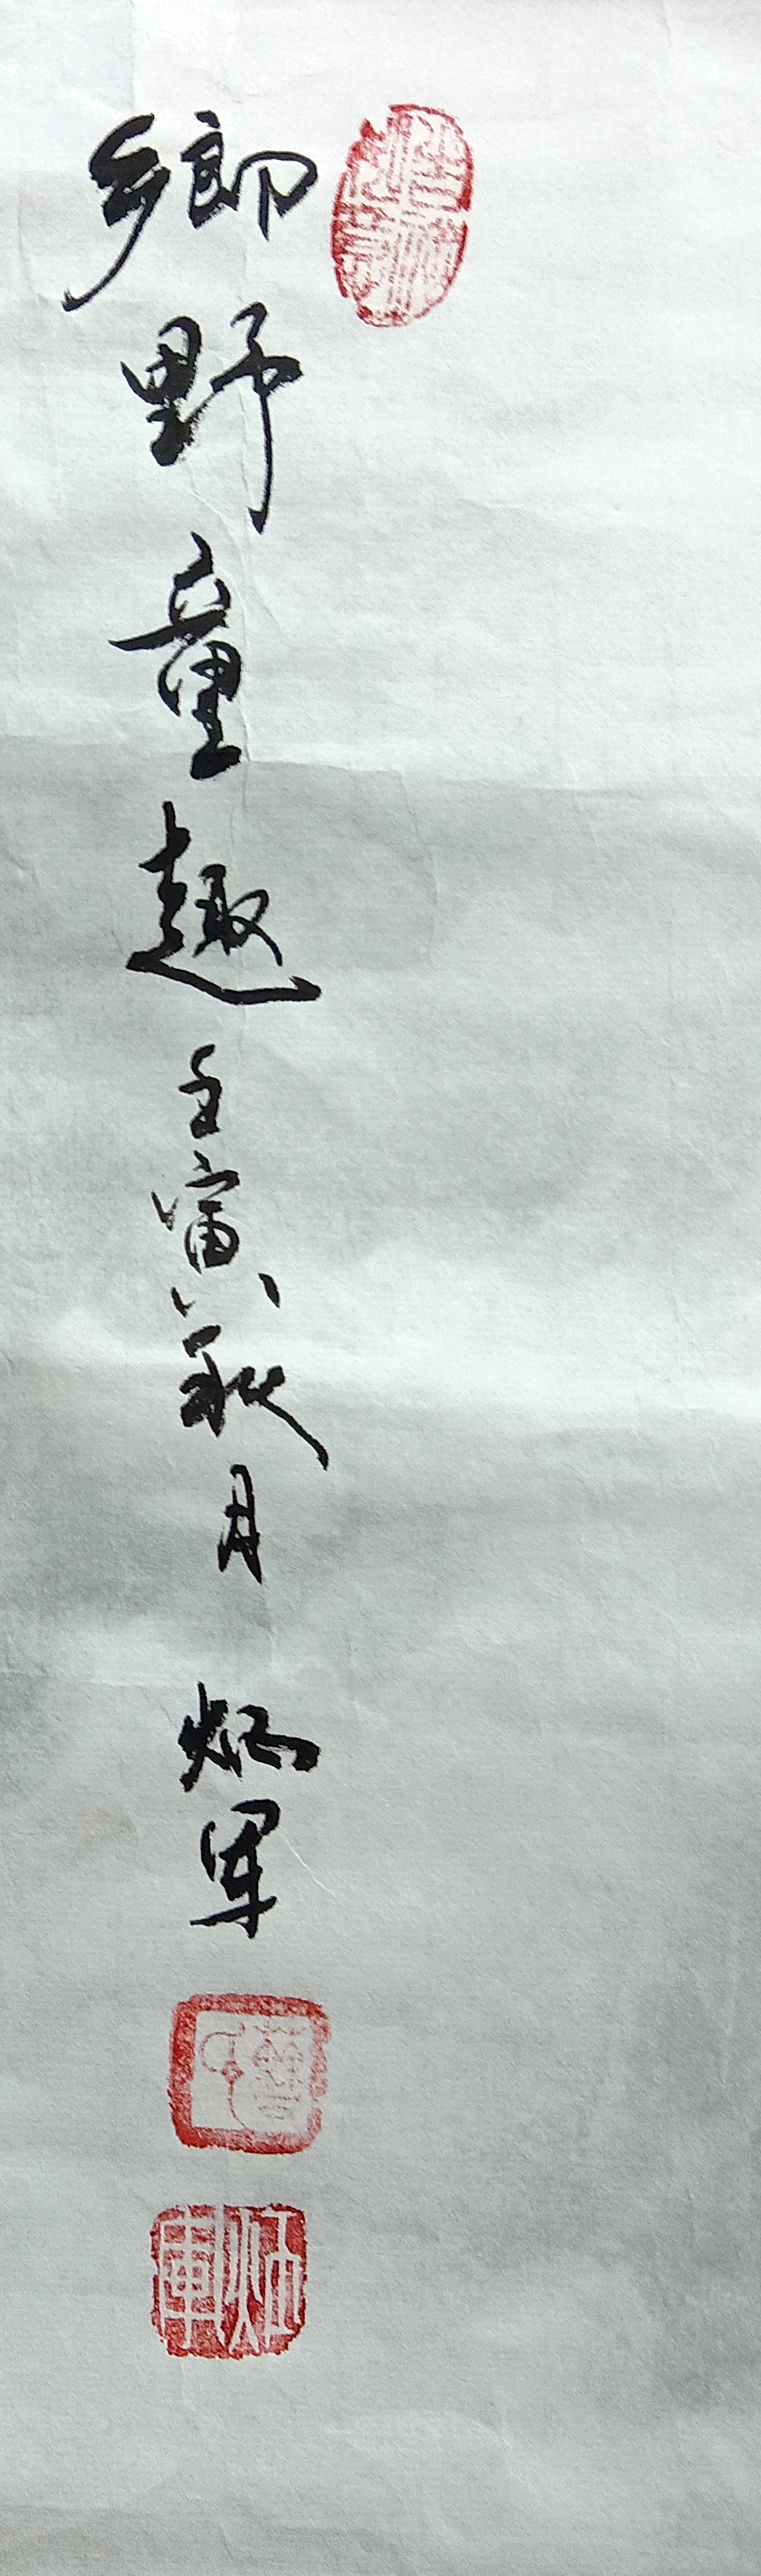 鄉野童趣壬寅秋月 炳军
炳軍